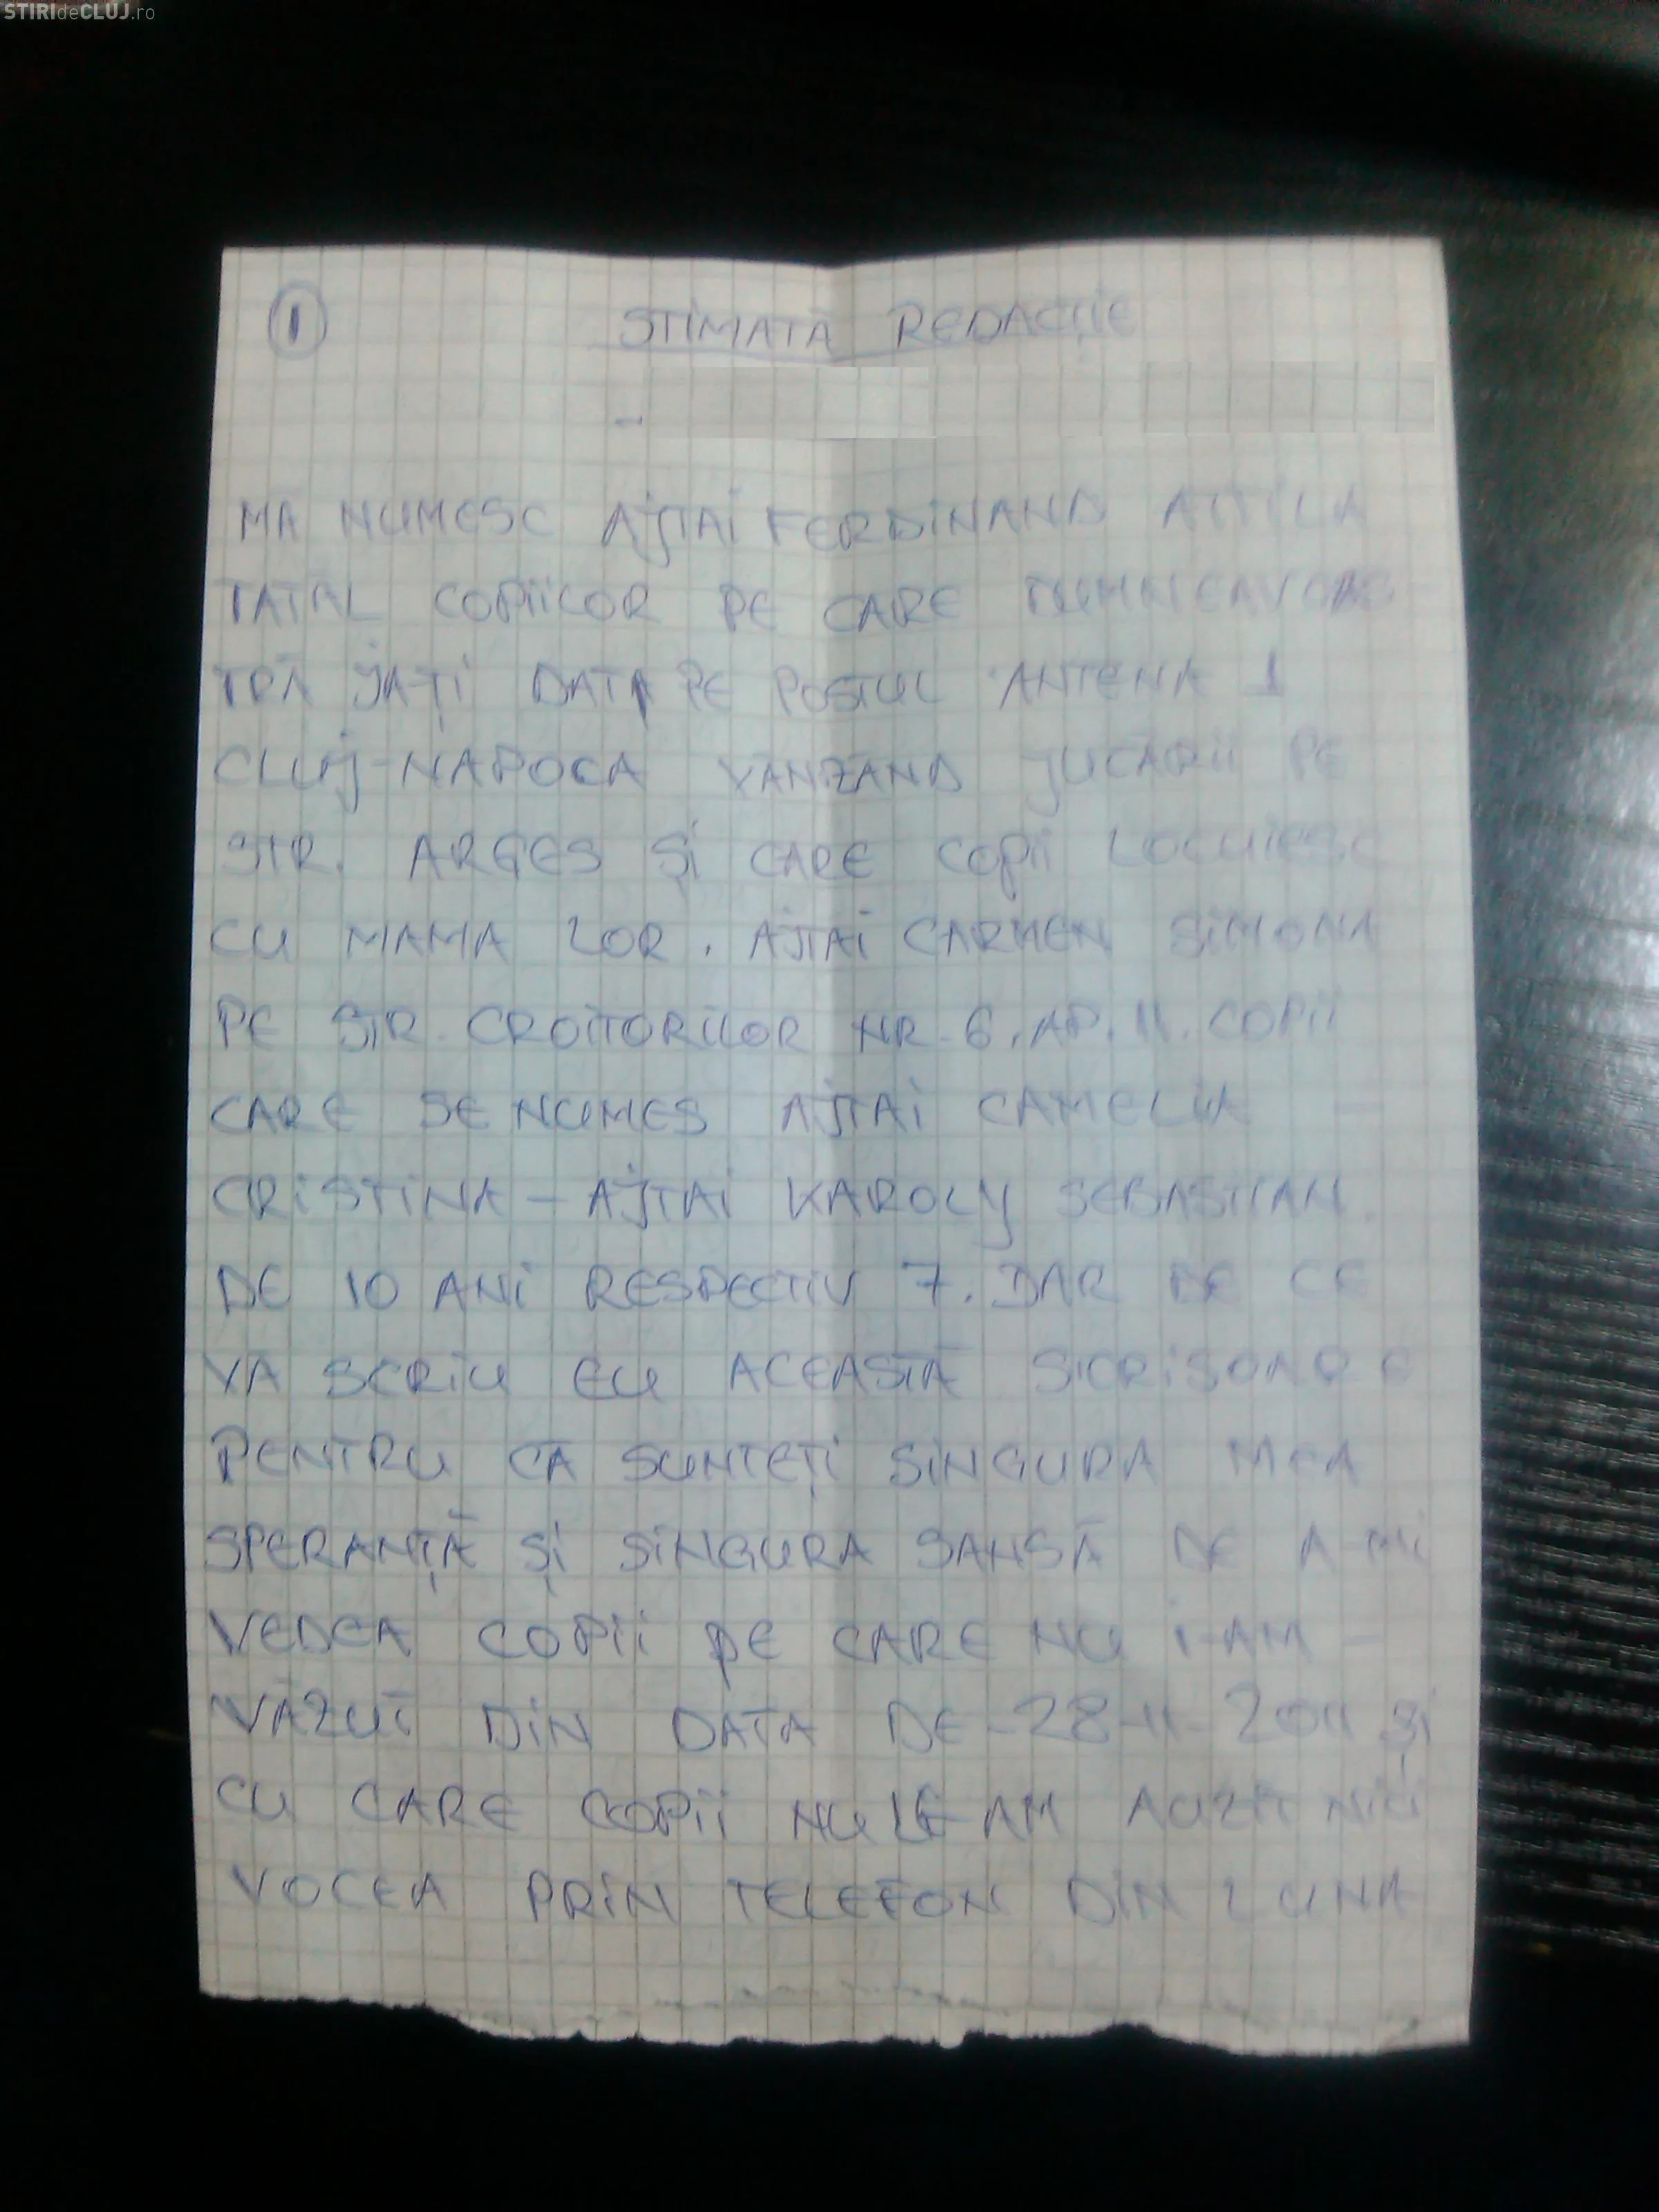 STIRIdeCLUJ.ro
1 STIMATĂ REDACȚIE
MĂ NUMESC AJTAI FERDINAND ATTILA
TATĂL COPIILOR PE CARE DUMNEAVOAS-
TRĂ JA-ȚI DAT PE POSTUL ANTENA 1
CLUJ-NAPOCA VÂNZÂND JUCĂRII PE
STR. ARGES ȘI CARE COPII LOCUIESC
CU MAMA LOR. AJTAI CARMEN SIMONA
PE STR. CROITORILOR NR-6. AP. 11. COPII
CARE SE NUMES AJTAI CAMELIA =
CRISTINA - AJTAI KAROLY SEBASTIAN.
DE 10 ANI RESPECTIV 7. DAR DE CE
VĂ SCRIU EU ACEASTĂ SICRISOARE
PENTRU CĂ SUNTEȚI SINGURA MEA
SPERANȚĂ ȘI SINGURA SANSĂ DE A-MI
VEDEA COPII PE CARE NU I-AM -
VĂZUT DIN DATA DE-28-11-2011 ȘI
CU CARE COPII NU LE-AM AUZIT NICI
VOCEA PRIN TELEFON DIN LUNA